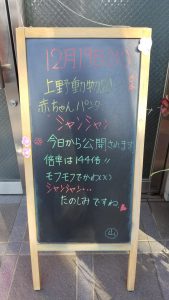 12月19日(火)
上野動物園の
赤ちゃんパンダ
シャンシャン
今日から公開されます
倍率は144倍!!
モフモフでかわいい
シャンシャン…
たのしみですね